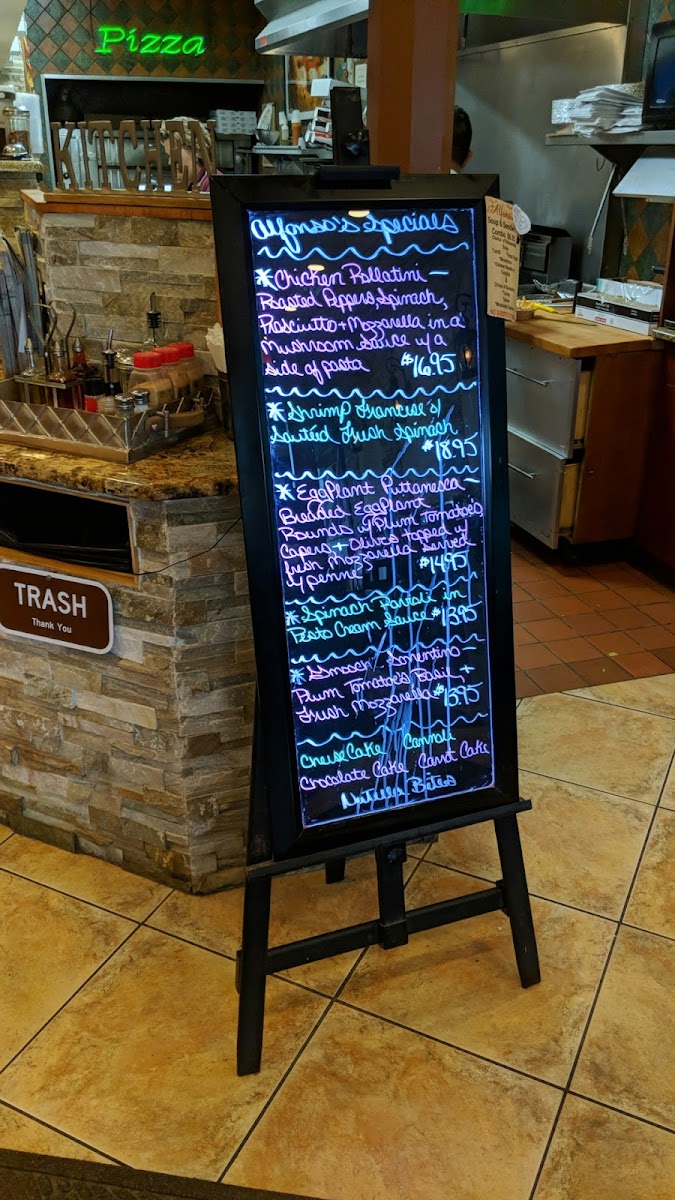 Pizza
KITCHEN
Alfonso's Specials
* Chicken Rollatini -
Roasted Peppers, Spinach,
Prosciutto + Mozzarella in a
Mushroom Sauce w/ a
side of pasta $16.95
* Shrimp Francese w/
Sauteed Fresh Spinach
$18.95
* EggPlant Puttanesca -
Breaded EggPlant
Rounds w/ Plum Tomatoe's
Capers + Olives topped w/
fresh Mozzarella served
w/ penne $14.95
* Spinach Ravioli in
Pesto Cream Sauce $13.95
* Gnocchi Sorrentino -
Plum Tomatoe's, Basil +
Fresh Mozzarella $13.95
CheeseCake Cannoli
Chocolate Cake Carrot Cake
Nutella Bites
TRASH
Thank You
Soup & Sandwich
Combo